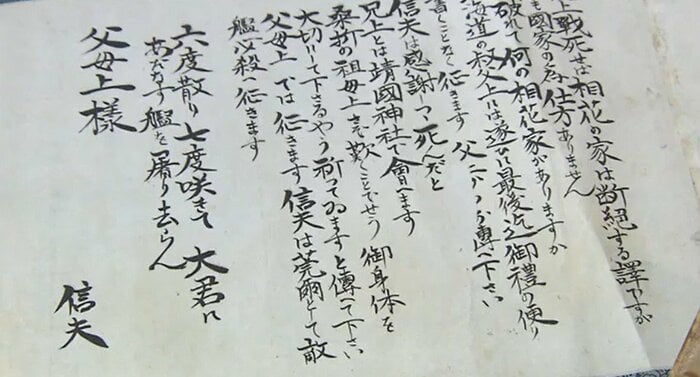 上戰死せば相花の家は断絶する譯ですが
も國家の為仕方ありません
破れて何の相花家がありますか
海道の叔父上には遂ひに最後迄御禮の便り
書くことなく征きます 父上から傳へ下さい
信夫は感謝しつゝ死んだと
兄上には靖國神社で會へます
桑折の祖母上さぞ歎くことでせう 御身体を
大切にして下さるやう祈ってゐますと傳へて下さい
父母上 では征きます 信夫は莞爾として敵
艦必殺に征きます
六度散り七度咲きて 大君に
あだなす艦を屠り去らん
父母上様
信夫